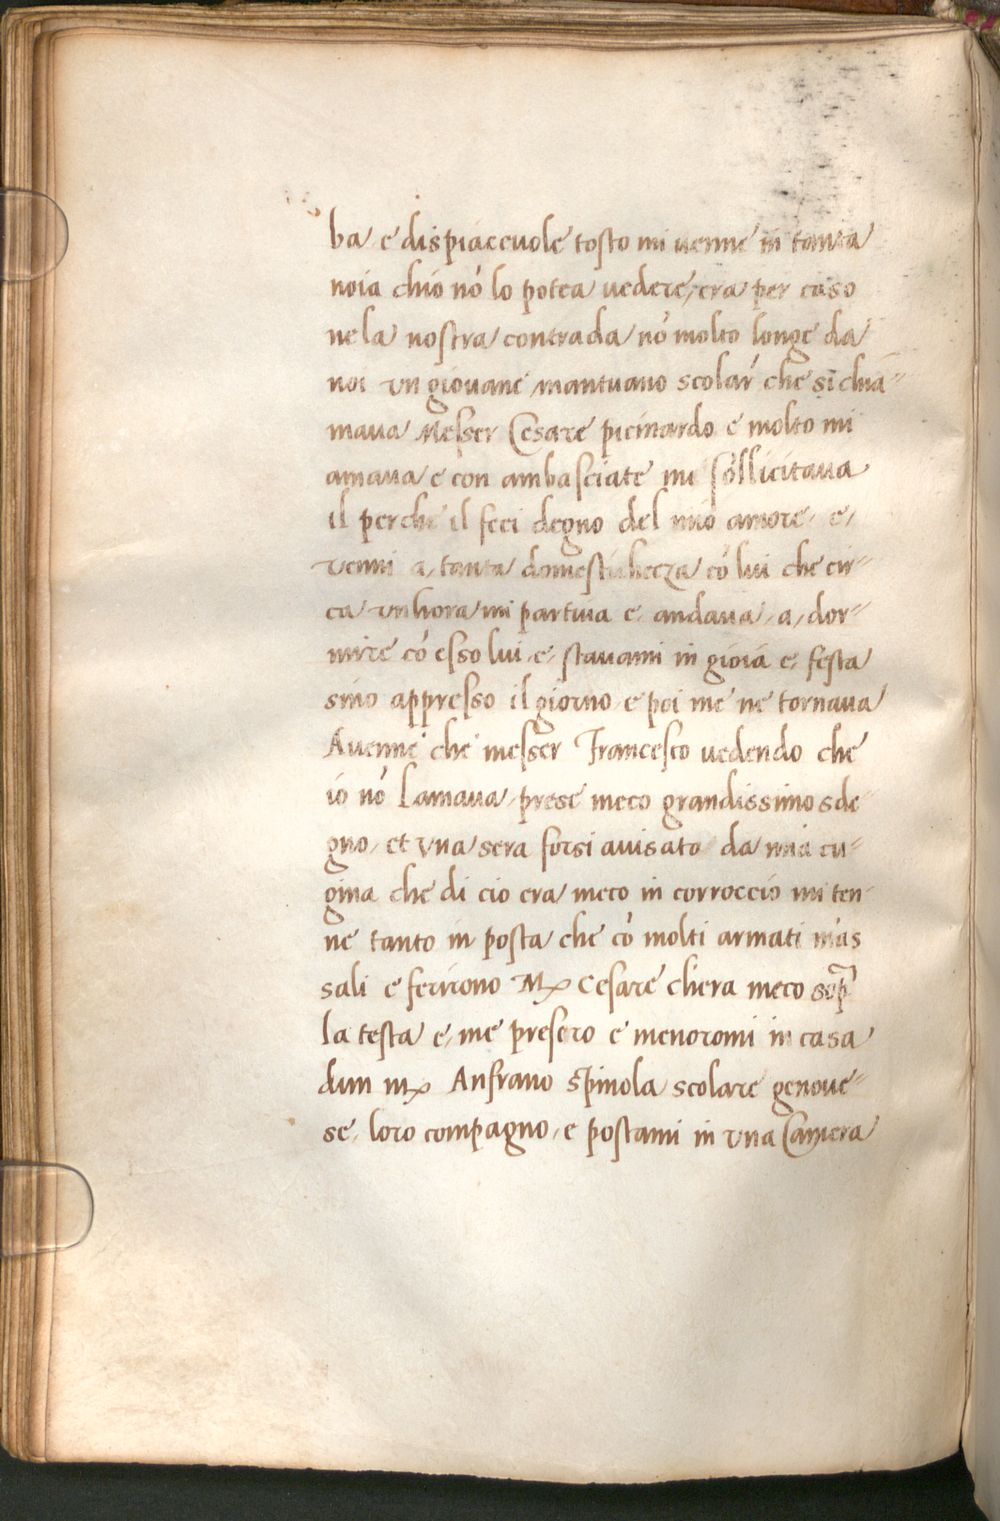 ba e dispiaceuole tosto mi uenne in tanta
noia chio nó lo potea uedere, era per caso
ne la nostra contrada nó molto longe da
noi vn giouane mantuano scolar che si chia=
maua Messer Cesare picinardo e molto mi
amaua e con ambasciate mi sollicitaua
il perche il feci degno del mio amore, e,
venni a, tanta domestichezza có lui che cir=
ca vnhora mi partiua e, andaua, a, dor=
mire có esso lui, e, stauami in gioia e, festa
sino appresso il giorno e poi me ne tornaua
Auenne che messer Francesco uedendo che
io nó Lamaua, prese meco grandissimo sde=
gno, et vna sera forsi auisato da mia cu=
gina che di cio era meco in corroccio mi ten=
ne tanto in posta che có molti armati mas
sali e ferirono M. Cesare chera meco sop̃
la testa e, me presero e menoromi in casa
dun m. Anfrano Spinola scolare genoue=
se, loro compagno, e postami in vna Camera